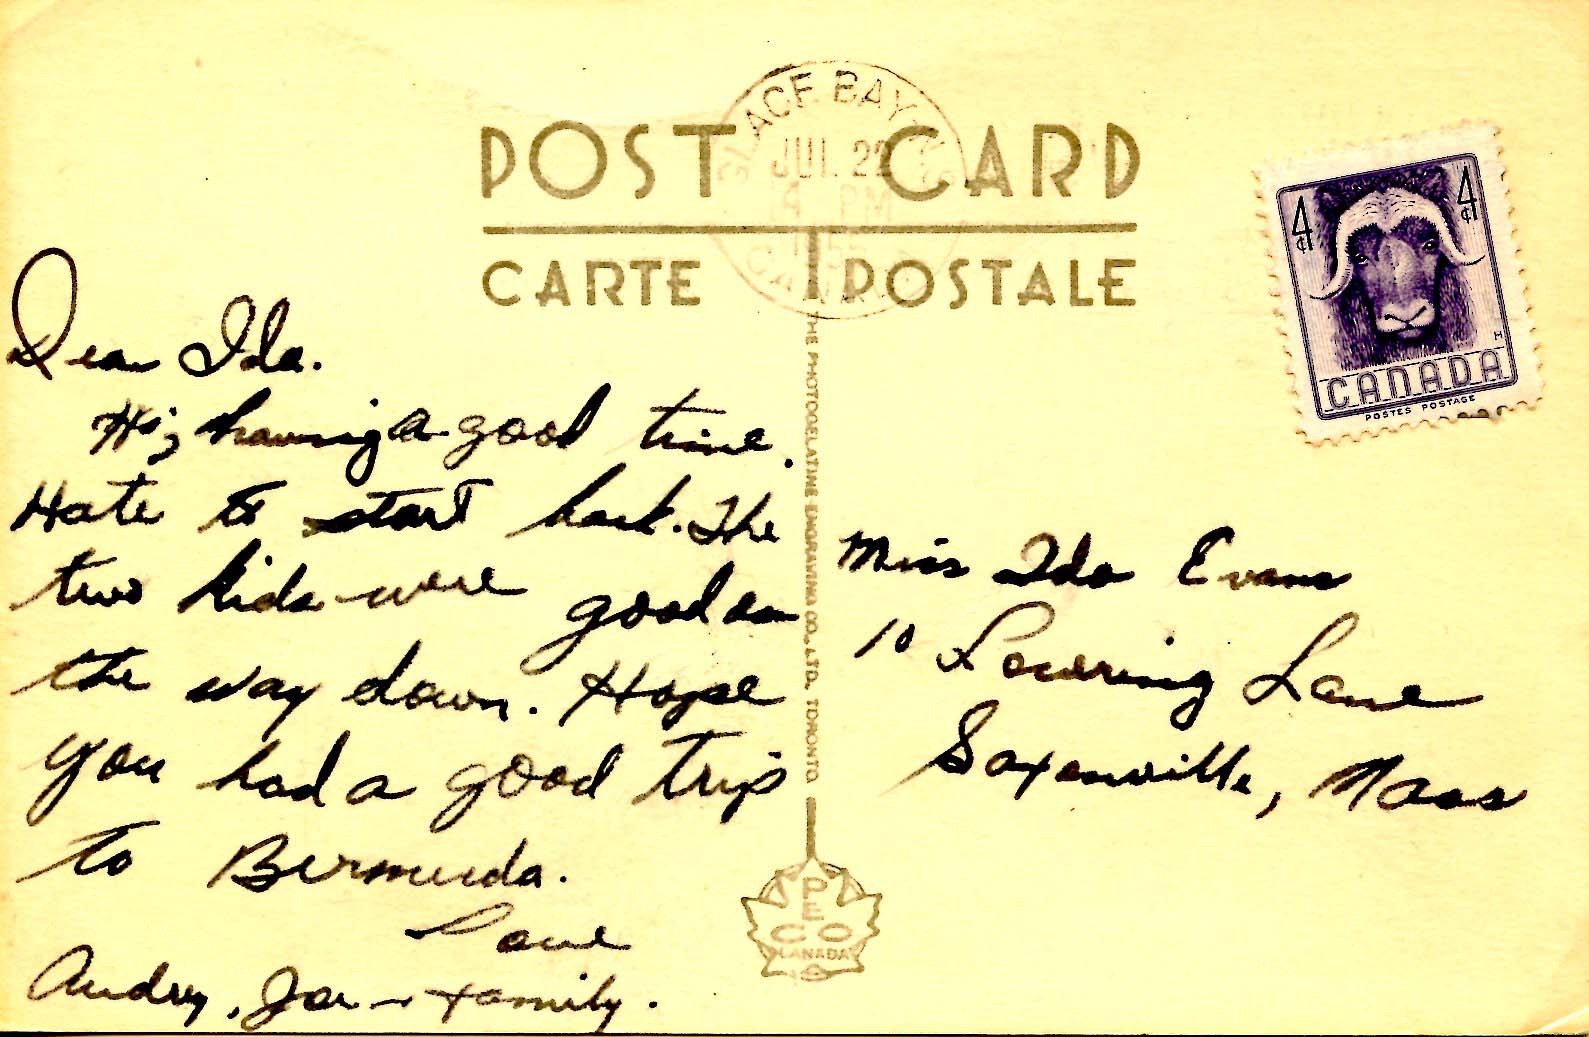 POST CARD
CARTE POSTALE
GLACE BAY N.S.
JUL 22
4 PM
CANADA
4¢ 4¢
CANADA
POSTES POSTAGE
Dear Ida.
Hi, having a good time.
Hate to start back. The
two kids were good on
the way down. Hope
you had a good trip
to Bermuda.
Love
Audrey, Joe + family.
THE PHOTOGELATINE ENGRAVING CO., LTD. TORONTO.
Miss Ida Evans
10 Lowering Lane
Saxonville, Mass
PECO
CANADA